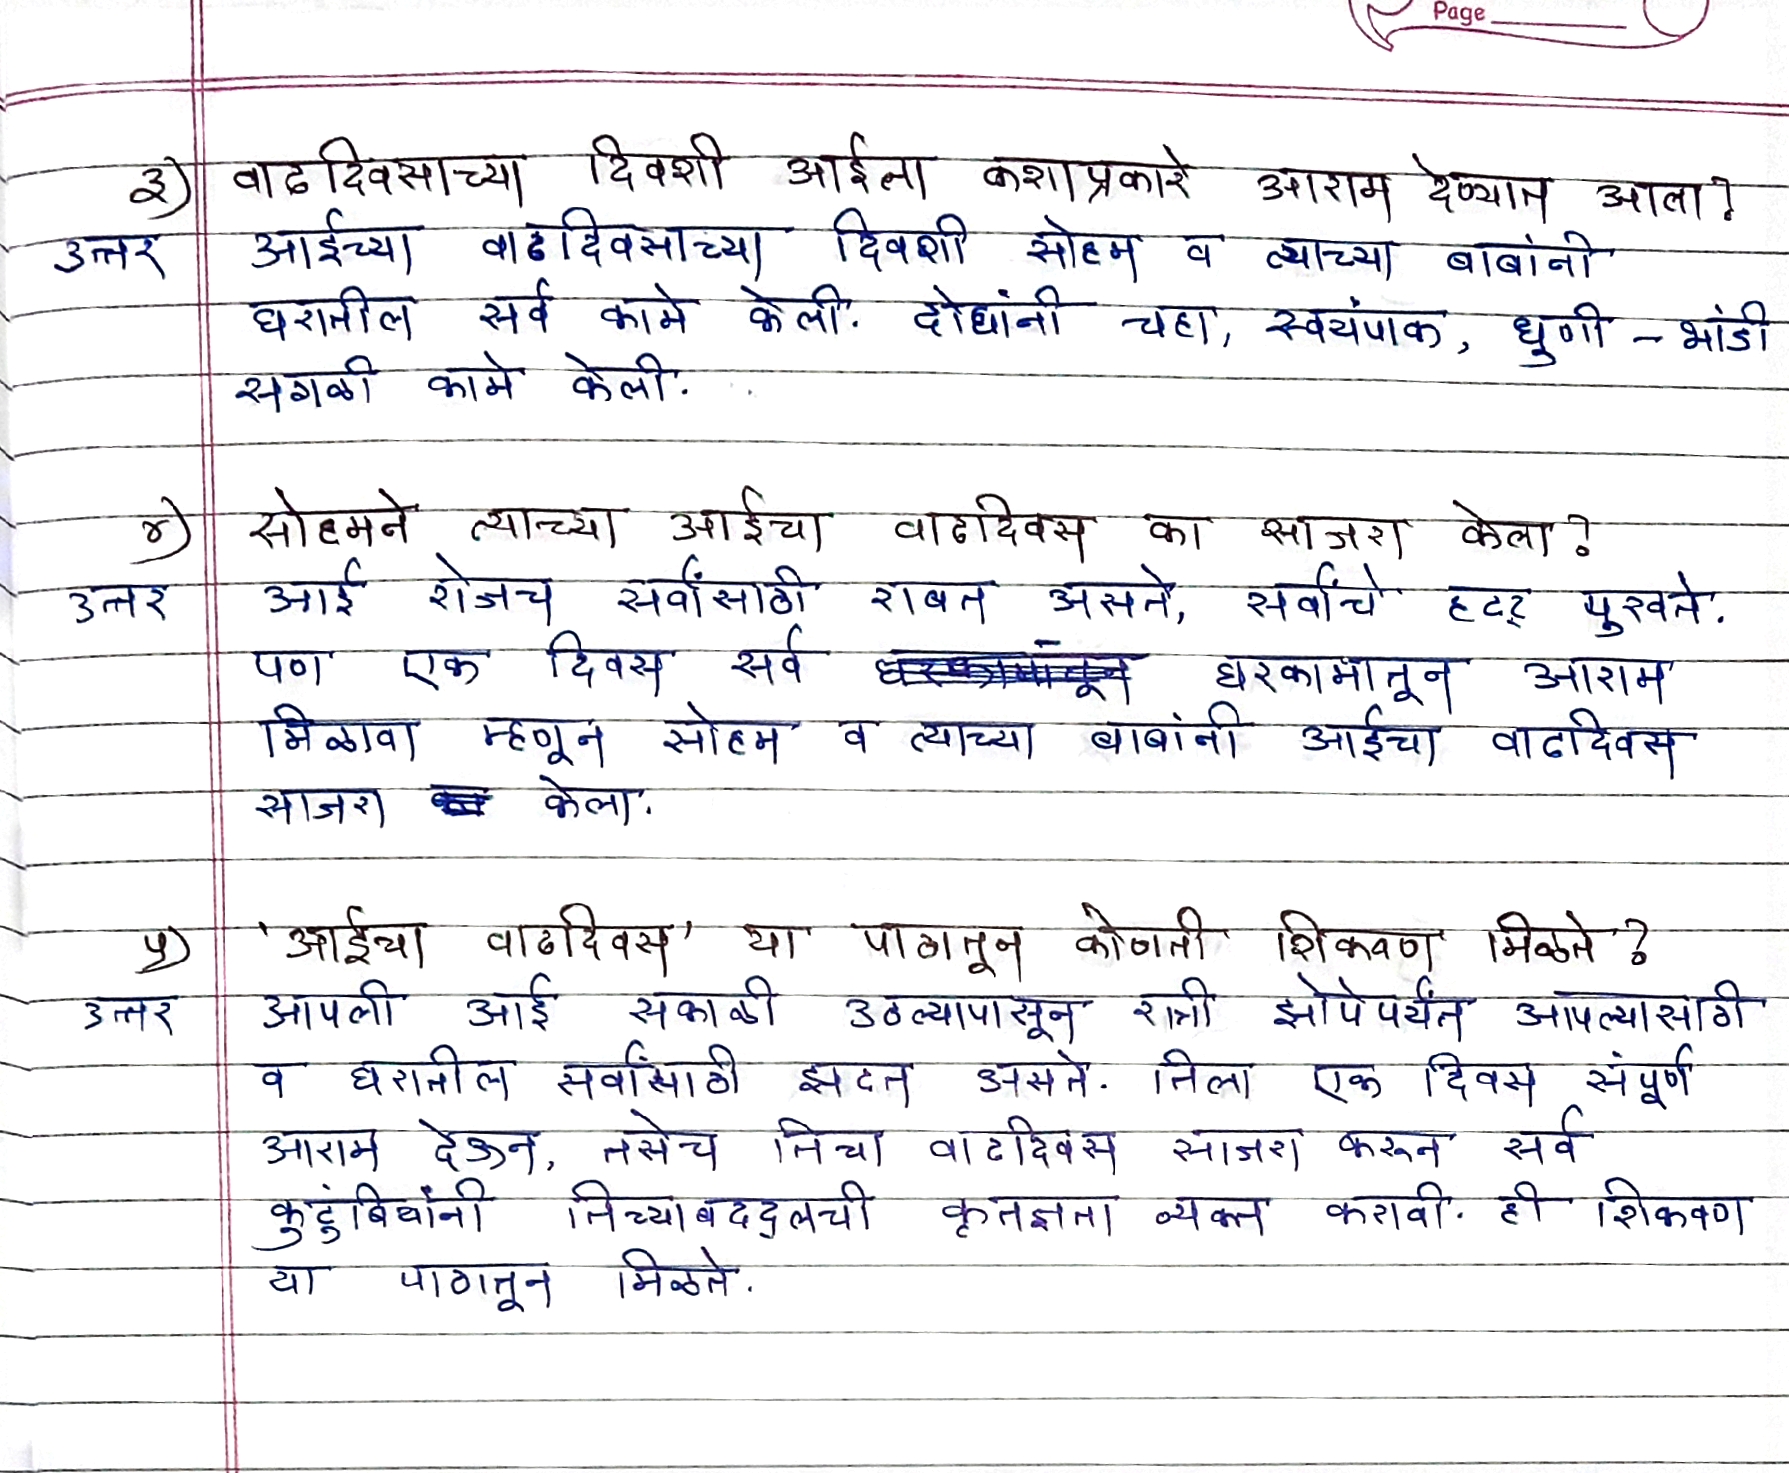 Page
३) वाढदिवसाच्या दिवशी आईला कशाप्रकारे आराम देण्यात आला?
उत्तर आईच्या वाढदिवसाच्या दिवशी सोहम व त्याच्या बाबांनी
घरातील सर्व कामे केली. दोघांनी चहा, स्वयंपाक, धुणी - भांडी
सगळी कामे केली.
४) सोहमने त्याच्या आईचा वाढदिवस का साजरा केला?
उत्तर आई रोजच सर्वांसाठी राबत असते, सर्वांचे हट्ट पुरवते.
पण एक दिवस सर्व घरकामातून आराम
मिळावा म्हणून सोहम व त्याच्या बाबांनी आईचा वाढदिवस
साजरा केला.
५) 'आईचा वाढदिवस' या पाठातून कोणती शिकवण मिळते?
उत्तर आपली आई सकाळी उठल्यापासून रात्री झोपेपर्यंत आपल्यासाठी
व घरातील सर्वांसाठी झटत असते. तिला एक दिवस संपूर्ण
आराम देऊन, तसेच तिचा वाढदिवस साजरा करून सर्व
कुटुंबियांनी तिच्याबद्दलची कृतज्ञता व्यक्त करावी. ही शिकवण
या पाठातून मिळते.